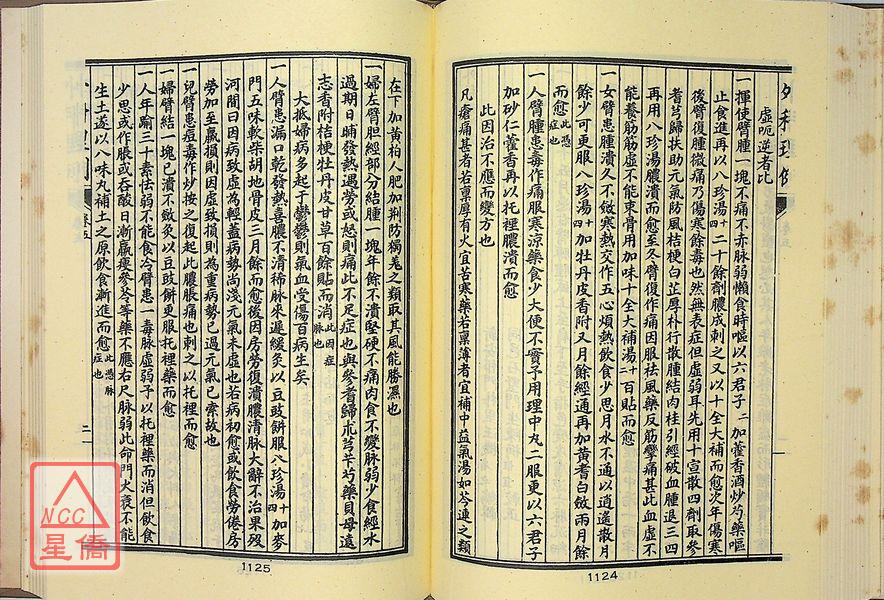 外科理例
虛呃逆者比
一揮使臂腫一塊不痛不赤脉弱懶食時嘔以六君子二加藿香酒炒芍藥嘔
止食進再以八珍湯十二十餘劑膿成刺之又以十全大補而愈次年傷寒
後臂復腫微痛乃傷寒餘毒也然無表症但虛弱耳先用十宣散四劑取參
耆芎歸扶助元氣防風桔梗白芷厚朴行散腫結肉桂引經破血腫退三四
再用八珍湯膿潰而愈至冬臂復作痛因服祛風藥反筋攣痛甚此血虛不
能養筋筋虛不能束骨用加味十全大補湯二十百貼而愈
一女臂患腫潰久不斂寒熱交作五心煩熱飲食少思月水不通以逍遙散月
餘少可更服八珍湯十四加牡丹皮香附又月餘經通再加黃耆白斂兩月餘
而愈此憑症也
一人臂腫患毒作痛服寒涼藥食少大便不實予用理中丸二服更以六君子
加砂仁藿香再以托裡膿潰而愈
此因治不應而變方也
凡瘡痛甚者若稟厚有火宜苦寒藥若稟薄者宜補中益氣湯如芩連之類
1124
在下加黃柏人肥加荆防獨羗之類取其風能勝濕也
一婦左臂胆經部分結腫一塊年餘不潰堅硬不痛肉食不變脉弱少食經水
過期日晡發熱遇勞或怒則痛此不足症也與參耆歸朮芎芍藥貝母遠
志香附桔梗牡丹皮甘草百餘貼而消此因症脉也
大抵婦病多起于鬱鬱則氣血受傷百病生矣
一人臂患漏口乾發熱喜膿不清稀脉來遲緩灸以豆豉餅服八珍湯十四加麥
門五味軟柴胡地骨皮三月餘而愈後因房勞復潰膿清脉大辭不治果歿
河間曰因病致虛為輕蓋病勢尚淺元氣未虛也若病初愈或飲食勞倦房
勞加至羸損則因虛致損則為重病勢已過元氣已索故也
一兒臂患痘毒作炒按之復起此膿脹痛也刺之以托裡而愈
一婦臂結一塊已潰不斂灸以豆豉餅更服托裡藥而愈
一人年踰三十素怯弱不能食冷臂患一毒脉虛弱予以托裡藥而消但飲食
少思或作脹或吞酸日漸羸瘦參苓等藥不應右尺脉弱此命門火衰不能
生土遂以八味丸補土之原飲食漸進而愈此憑脉症也
卷五
二一
1125
NCC
星僑